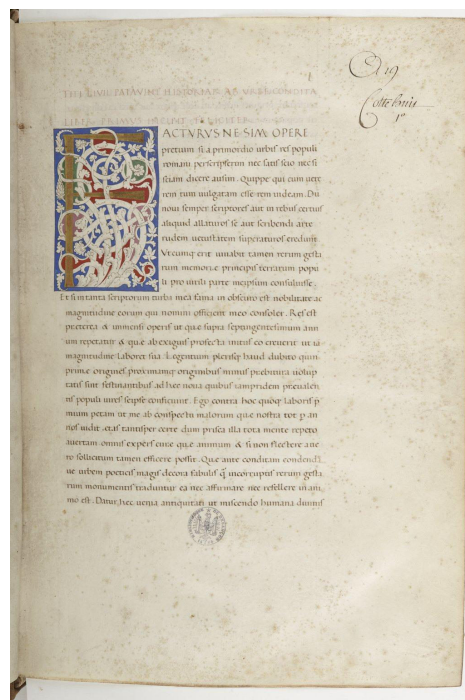 TITI LIVII PATAVINI HISTORIAR AB VRBE CONDITA
LIBER PRIMVS INCIPIT
A 19
Cottebrius
1º
FACTVRVS NE SIM OPERE
pretium si a primordio urbis res populi
romani perscripserim nec satis scio nec si
sciam dicere ausim. Quippe qui cum uete
rem tum uulgatam esse rem uideam. Dū
noui semper scriptores aut in rebus certius
aliquid allaturos se aut scribendi arte
rudem uetustatem superaturos credunt.
Vtcumq; erit iuuabit tamen rerum gesta
rum memoriæ principis terrarum popu
li pro uirili parte meipsum consuluisse.
Et si in tanta scriptorum turba mea fama in obscuro est nobilitate ac
magnitudine eorum qui nomini officient meo consoler. Res est
præterea & immensi operis ut quæ supra septingentesimum ann
um repetatur & quæ ab exiguis profecta initiis eo creuerit ut ia
magnitudine laboret sua. Legentium plerisq; haud dubito quin
primæ origines proximaq; originibus minus præbitura uolup
tatis sint festinantibus ad hec noua quibus iampridem preualen
tis populi uires seipse conficiunt. Ego contra hoc quoq; laboris p̄
mium petam ut me ab conspectu malorum quæ nostra tot p̲ an
nos uidit ętas tantisper certe dum prisca illa tota mente repeto
auertam omnis expers curæ quæ animum & si non flectere a ue
ro sollicitum tamen efficere possit. Que ante conditam condenda
ue urbem poeticis magis decora fabulis q̄ incorruptis rerum gesta
rum monumentis traduntur ea nec affirmare nec refellere in ani
mo est. Datur hec uenia antiquitati ut miscendo humana diuinis